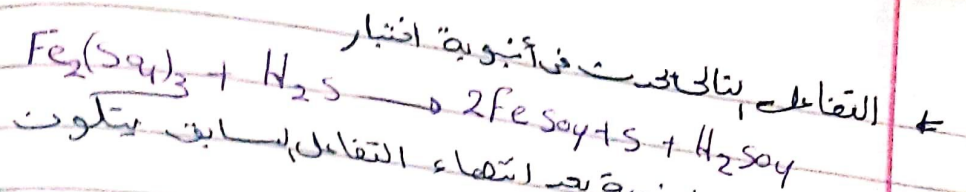 * التفاعل التالي يحدث في أنبوبة اختبار
Fe2(SO4)3 + H2S → 2FeSO4 + S + H2SO4
بعد انتهاء التفاعل السابق يتكون